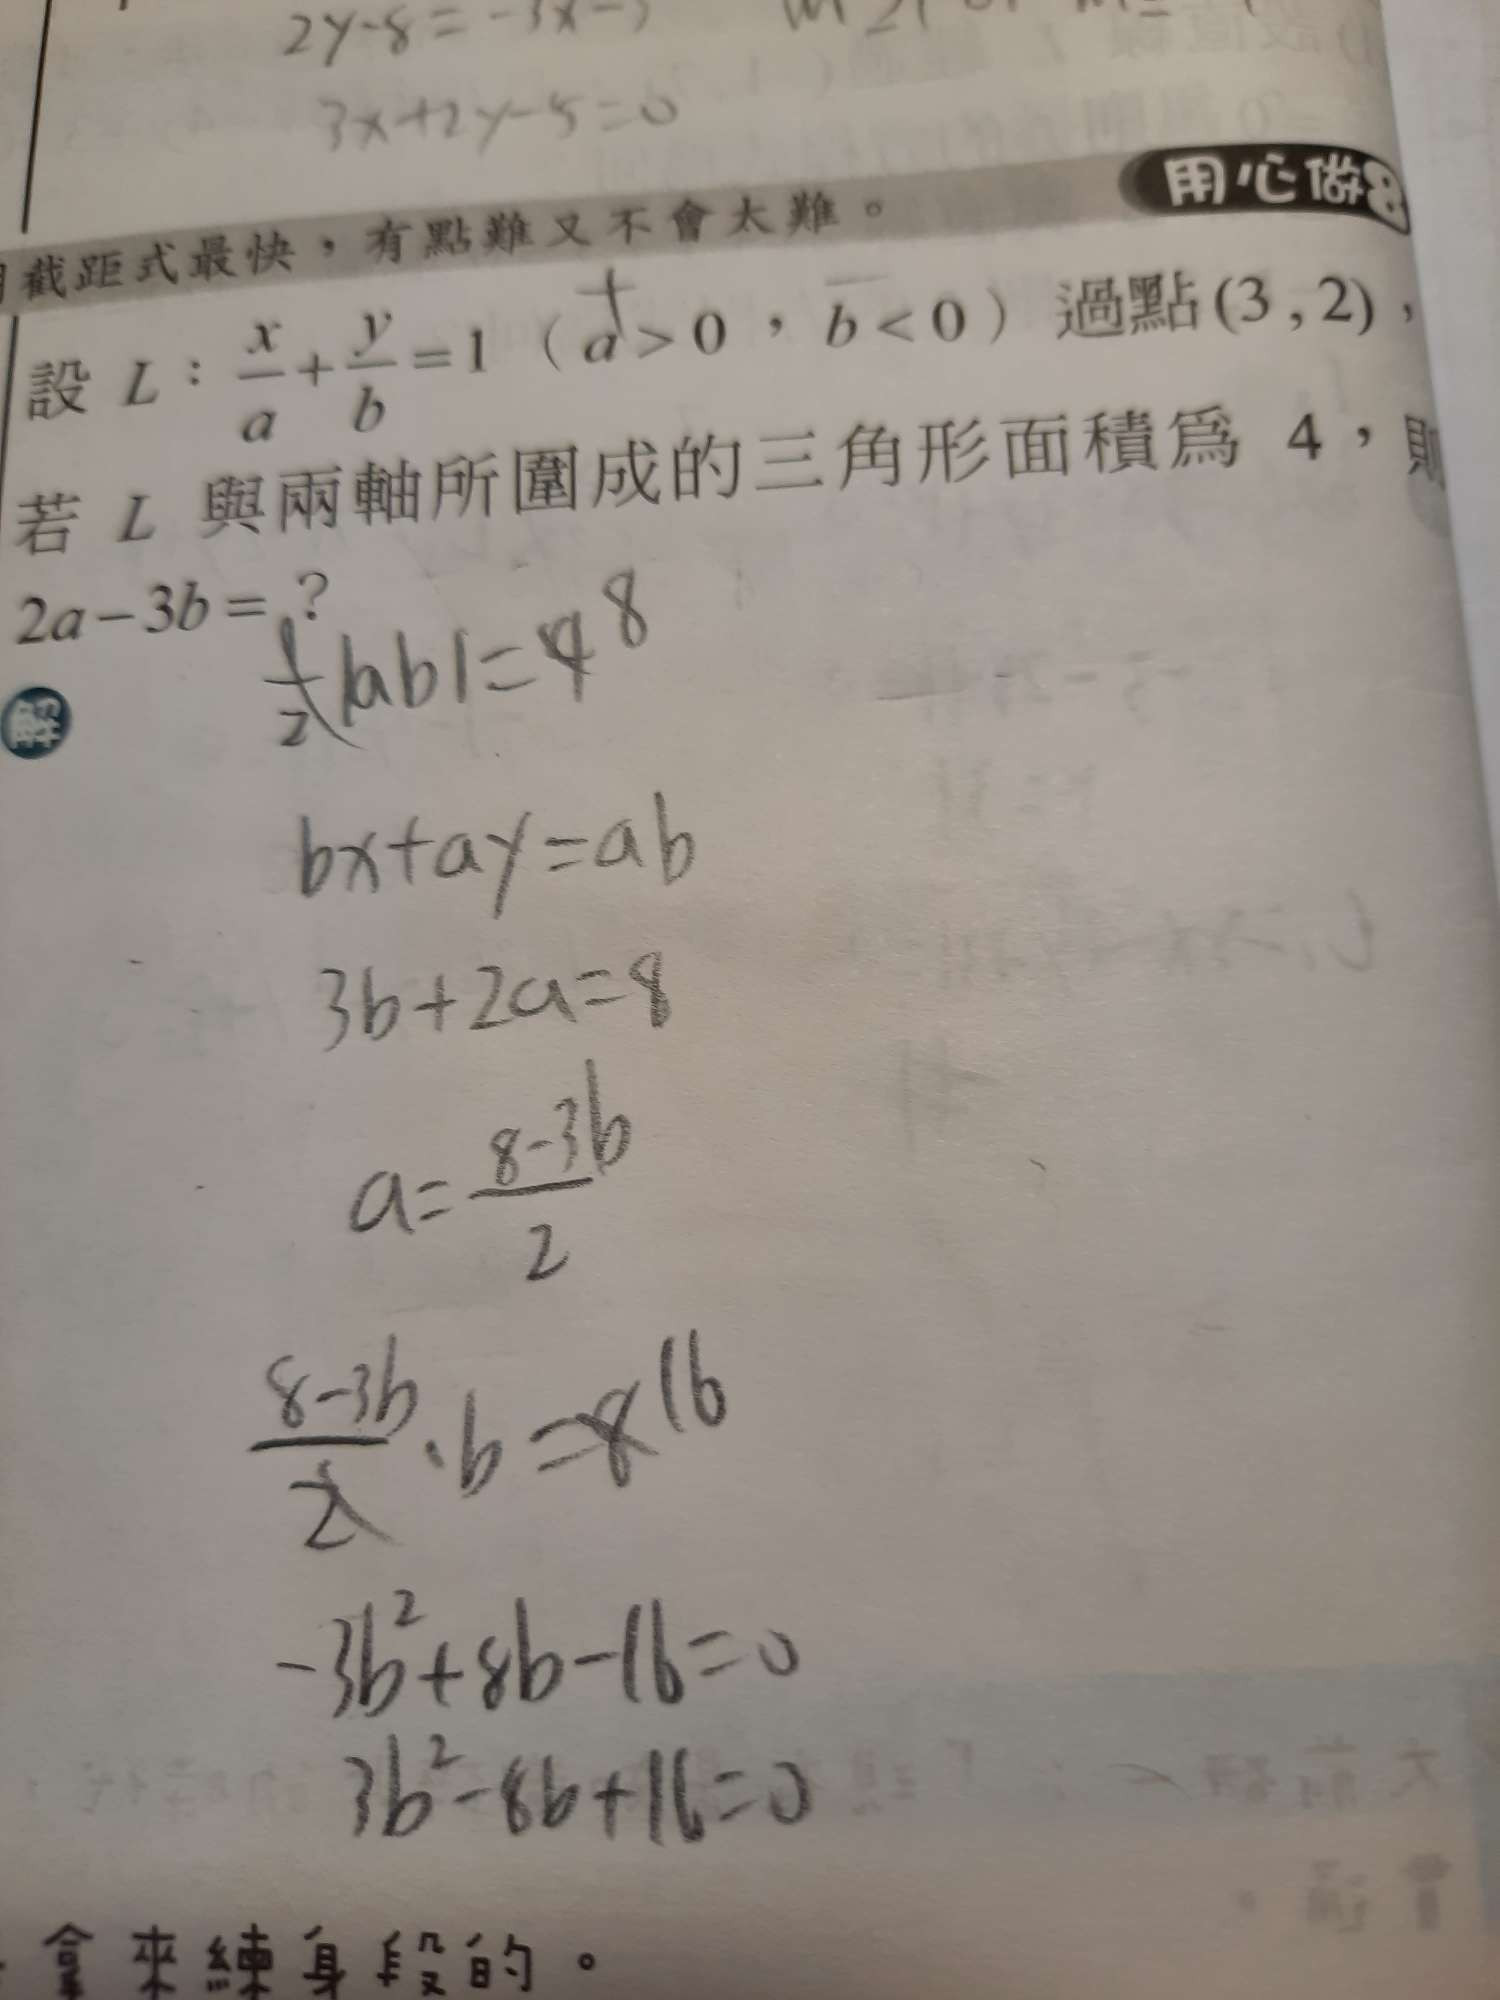 2y-8=-3x-3
3x+2y-5=0
用心做8
截距式最快，有點難又不會太難。
設 L：x/a+y/b=1（a>0，b<0）過點(3,2)，
+ −
若 L 與兩軸所圍成的三角形面積為 4，則
2a-3b=？
1/2|ab|=4 8
解
bx+ay=ab
3b+2a=8
a=8-3b/2
8-3b/2·b=8 16
-3b²+8b-16=0
3b²-8b+16=0
拿來練身段的。